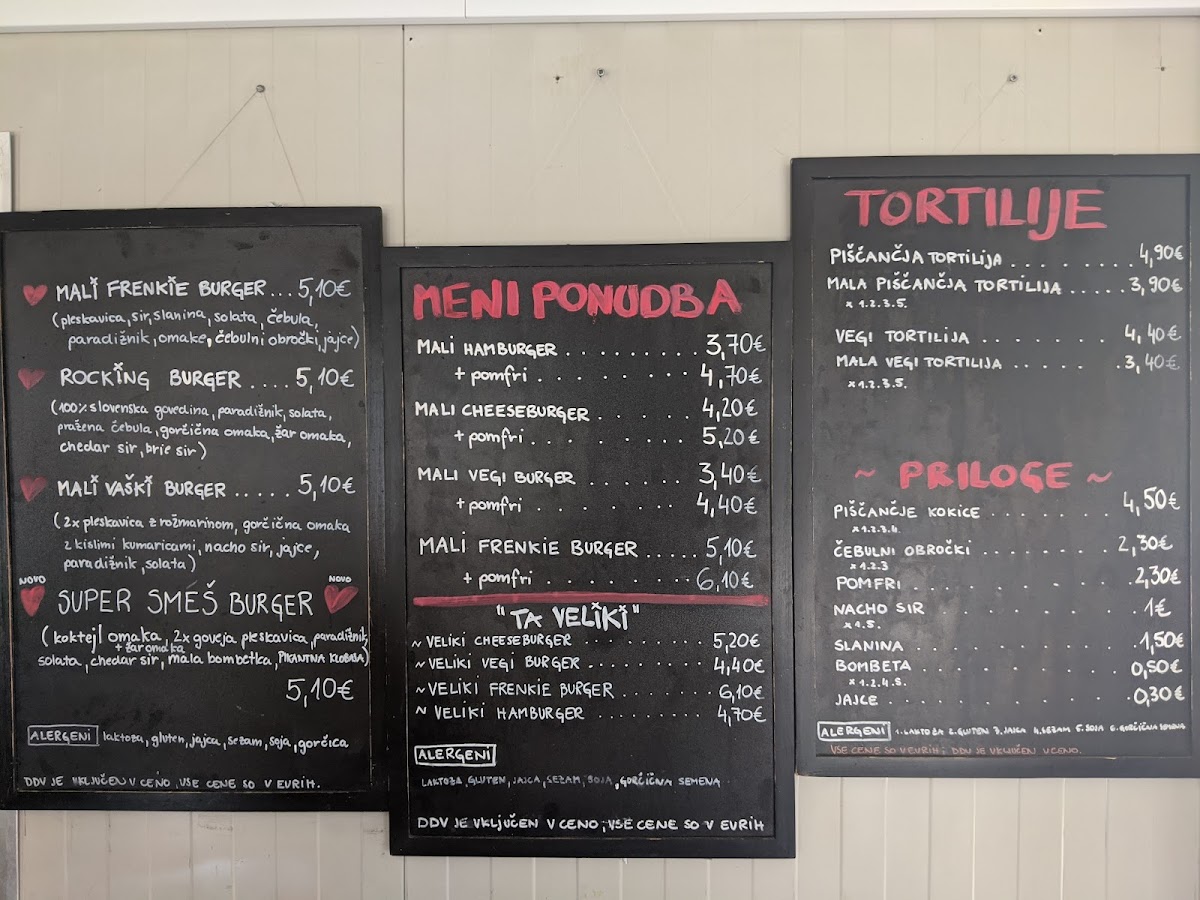 MALI FRENKIE BURGER ... 5,10€
(pleskavica, sir, slanina, solata, čebula,
paradižnik, omake, čebulni obročki, jajce)
ROCKING BURGER .... 5,10€
(100% slovenska govedina, paradižnik, solata,
pražena čebula, gorčična omaka, žar omaka,
chedar sir, brie sir)
MALI VAŠKI BURGER ..... 5,10€
(2x pleskavica z rožmarinom, gorčična omaka
z kislimi kumaricami, nacho sir, jajce,
paradižnik, solata)
NOVO NOVO
SUPER SMEŠ BURGER
(koktejl omaka, 2x goveja pleskavica, paradižnik,
+ žar omaka
solata, chedar sir, mala bombetka, PIKANTNA KLOBASA)
5,10€
ALERGENI laktoza, gluten, jajca, sezam, soja, gorčica
DDV JE VKLJUČEN V CENO, VSE CENE SO V EVRIH.
MENI PONUDBA
MALI HAMBURGER ......... 3,70€
+ pomfri ......... 4,70€
MALI CHEESEBURGER ...... 4,20€
+ pomfri ......... 5,20€
MALI VEGI BURGER ....... 3,40€
+ pomfri ......... 4,40€
MALI FRENKIE BURGER ..... 5,10€
+ pomfri ......... 6,10€
"TA VELIKI"
~ VELIKI CHEESEBURGER ......... 5,20€
~ VELIKI VEGI BURGER ......... 4,40€
~ VELIKI FRENKIE BURGER ....... 6,10€
~ VELIKI HAMBURGER ......... 4,70€
ALERGENI
LAKTOZA, GLUTEN, JAJCA, SEZAM, SOJA, GORČIČNA SEMENA
DDV JE VKLJUČEN V CENO, VSE CENE SO V EVRIH
TORTILIJE
PIŠČANČJA TORTILIJA ......... 4,90€
MALA PIŠČANČJA TORTILIJA ..... 3,90€
* 1.2.3.5.
VEGI TORTILIJA ......... 4,40€
MALA VEGI TORTILIJA ....... 3,40€
* 1.2.3.5.
~ PRILOGE ~
PIŠČANČJE KOKICE ......... 4,50€
* 1.2.3.4.
ČEBULNI OBROČKI ......... 2,30€
* 1.2.3
POMFRI ......... 2,30€
NACHO SIR ......... 1€
* 1.5.
SLANINA ......... 1,50€
BOMBETA ......... 0,50€
* 1.2.4.5.
JAJCE ......... 0,30€
ALERGENI 1. LAKTOZA 2. GLUTEN 3. JAJCA 4. SEZAM 5. SOJA 6. GORČIČNA SEMENA
VSE CENE SO V EVRIH; DDV JE VKLJUČEN V CENO.